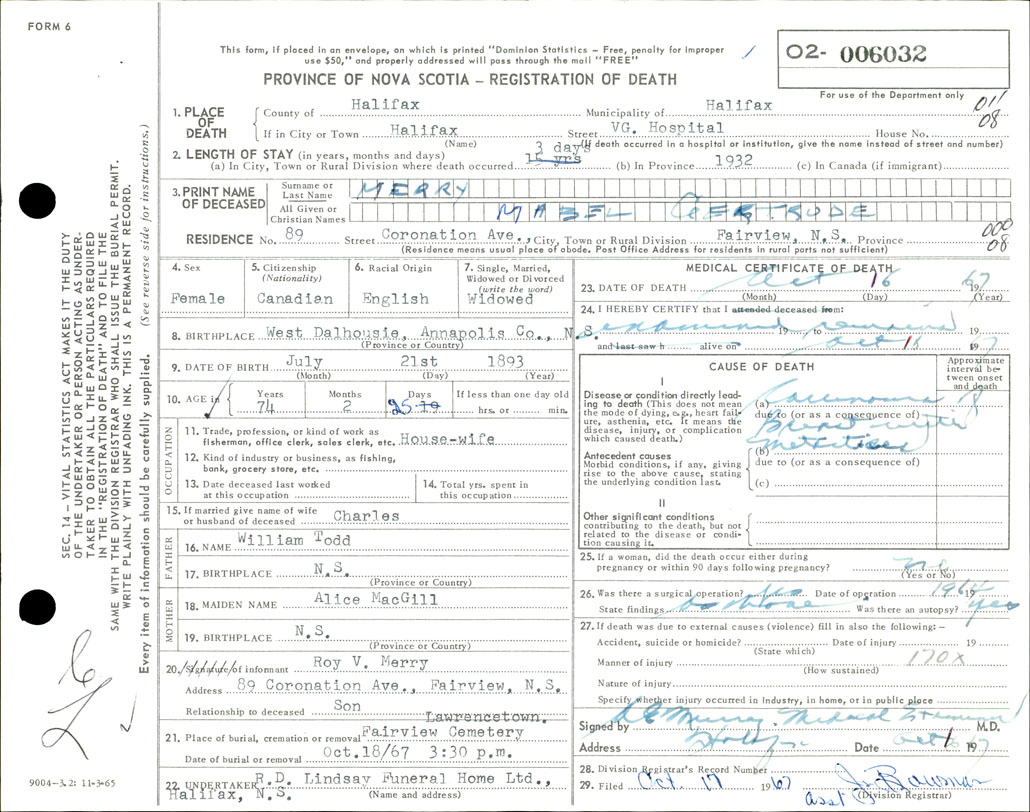 FORM 6
This form, if placed in an envelope, on which is printed "Dominion Statistics – Free, penalty for improper
use $50," and properly addressed will pass through the mail "FREE"
O2- 006032
PROVINCE OF NOVA SCOTIA – REGISTRATION OF DEATH
For use of the Department only
1. PLACE OF DEATH
County of Halifax Municipality of Halifax 011
If in City or Town Halifax Street VG. Hospital House No. 08
(Name) (If death occurred in a hospital or institution, give the name instead of street and number)
2. LENGTH OF STAY (in years, months and days) 3 days
(a) In City, Town or Rural Division where death occurred. (b) In Province 1932 (c) In Canada (if immigrant)
3. PRINT NAME OF DECEASED
Surname or Last Name MERRY
All Given or Christian Names MABEL GERTRUDE
RESIDENCE No. 89 Street Coronation Ave., City, Town or Rural Division Fairview, N.S. Province 000 08
(Residence means usual place of abode. Post Office Address for residents in rural parts not sufficient)
4. Sex
Female
5. Citizenship (Nationality)
Canadian
6. Racial Origin
English
7. Single, Married, Widowed or Divorced (write the word)
Widowed
8. BIRTHPLACE West Dalhousie, Annapolis Co., N.S.
(Province or Country)
9. DATE OF BIRTH July 21st 1893
(Month) (Day) (Year)
10. AGE in Years Months Days If less than one day old
74 2 25 hrs. or min.
OCCUPATION
11. Trade, profession, or kind of work as
fisherman, office clerk, sales clerk, etc. House-wife
12. Kind of industry or business, as fishing,
bank, grocery store, etc.
13. Date deceased last worked
at this occupation
14. Total yrs. spent in
this occupation
15. If married give name of wife
or husband of deceased Charles
FATHER
16. NAME William Todd
17. BIRTHPLACE N.S.
(Province or Country)
MOTHER
18. MAIDEN NAME Alice MacGill
19. BIRTHPLACE N.S.
(Province or Country)
20. Signature of informant Roy V. Merry
Address 89 Coronation Ave., Fairview, N.S.
Relationship to deceased Son
Lawrencetown.
21. Place of burial, cremation or removal Fairview Cemetery
Date of burial or removal Oct.18/67 3:30 p.m.
22. UNDERTAKER R.D. Lindsay Funeral Home Ltd.,
Halifax, N.S. (Name and address)
MEDICAL CERTIFICATE OF DEATH
23. DATE OF DEATH Oct 16 67
(Month) (Day) (Year)
24. I HEREBY CERTIFY that I attended deceased from:
examined 19 to remains 19
and last saw h alive on Oct 16 1967
CAUSE OF DEATH
Approximate interval between onset and death
I
Disease or condition directly leading to death (This does not mean the mode of dying, e.g., heart failure, asthenia, etc. It means the disease, injury, or complication which caused death.)
(a) Carcinoma
due to (or as a consequence of)
Breast with
(b) Metastases
Antecedent causes
Morbid conditions, if any, giving rise to the above cause, stating the underlying condition last.
due to (or as a consequence of)
(c)
II
Other significant conditions contributing to the death, but not related to the disease or condition causing it.
25. If a woman, did the death occur either during
pregnancy or within 90 days following pregnancy? No
(Yes or No)
26. Was there a surgical operation? Yes Date of operation 1964 19
State findings as above Was there an autopsy? yes
27. If death was due to external causes (violence) fill in also the following: –
Accident, suicide or homicide? Date of injury 19
(State which)
Manner of injury 170X
(How sustained)
Nature of injury
Specify whether injury occurred in industry, in home, or in public place
Signed by Murray Medical Examiner M.D.
Address Halifax Date Oct 16 67
28. Division Registrar's Record Number
29. Filed Oct. 17 1967 J. Bowman
Asst (Division Registrar)
SEC. 14 – VITAL STATISTICS ACT MAKES IT THE DUTY
OF THE UNDERTAKER OR PERSON ACTING AS UNDER-
TAKER TO OBTAIN ALL THE PARTICULARS REQUIRED
IN THE "REGISTRATION OF DEATH" AND TO FILE THE
SAME WITH THE DIVISION REGISTRAR WHO SHALL ISSUE THE BURIAL PERMIT.
WRITE PLAINLY WITH UNFADING INK. THIS IS A PERMANENT RECORD.
Every item of information should be carefully supplied. (See reverse side for instructions.)
9004–3.2: 11-3-65